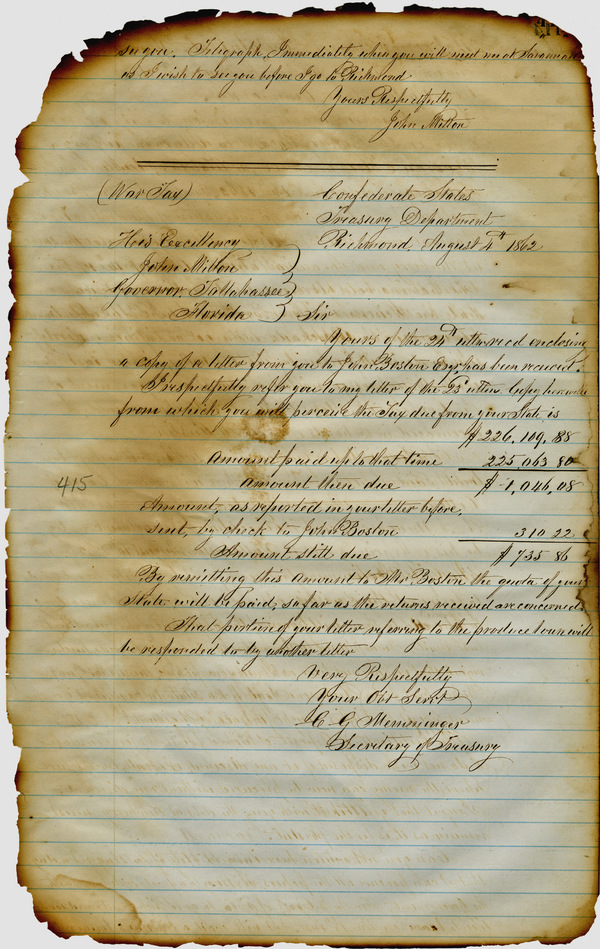 see you. Telegraph, Immediately when you will meet me at Savannah
as I wish to see you before I go to Richmond
Yours Respectfully
John Milton
(War Tax)
Confederate States
Treasury Department
Richmond, August 4th 1862
His Excellency
John Milton
Governor, Tallahassee
Florida
Sir
Yours of the 24th enclosing
a copy of a letter from you to John Boston Esqr has been received.
I respectfully refer you to my letter of the 23d Copy herewith
from which you will perceive the Tax due from your State is
$ 226,109.88
Amount paid up to that time 225,063 80
Amount then due $ 1,046,08
Amount, as reported in your letter before,
sent, by check to John Boston 310 22
Amount still due $ 735 86
By remitting this amount to Mr Boston the quota of your
State will be paid, so far as the returns received are concerned
That portion of your letter referring to the produce loan will
be responded to by another letter
Very Respectfully
Your Obt Servt
C G Memminger
Secretary of Treasury
415